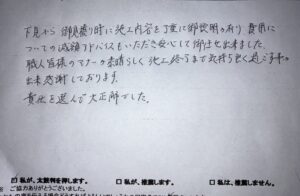 下見から御見積り時に施工内容を丁寧に御説明が有り 費用に
ついての減額アドバイスもいただき安心して御任せ出来ました。
職人皆様のマナーが素晴らしく施工終了まで気持ち良く過ごす事が
出来感謝しております。
貴社を選んで大正解でした。
☑ 私が、太鼓判を押します。 □ 私が、推薦します。 □ 私は、推薦しません。
ご協力ありがとうございました。